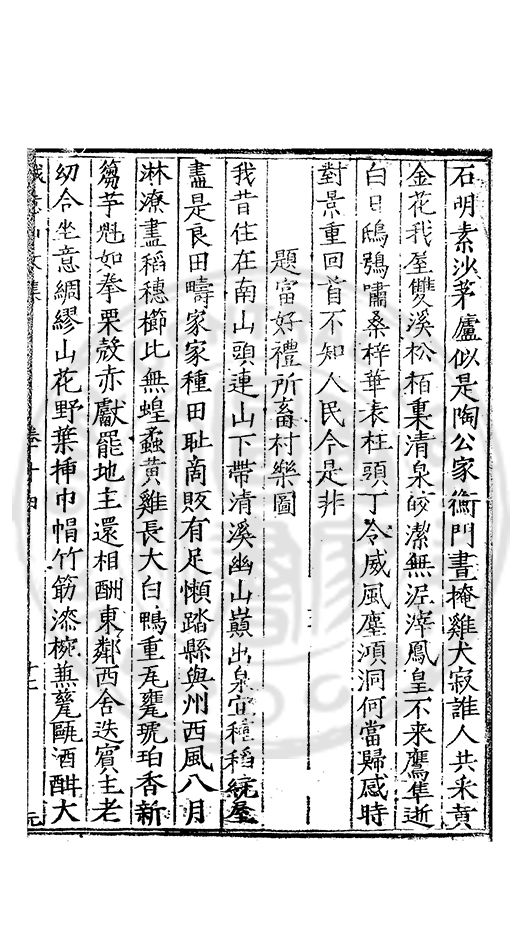 石明素沙茅廬似是陶公家衡門晝掩雞犬寂誰人共采黄
金花我屋雙溪松栢裏清泉皎潔無泥滓鳳皇不来鷹隼逝
白日鴟鴞嘯桑梓華表柱頭丁令威風塵澒洞何當歸感時
對景重回首不知人民今是非
題富好禮所畜村樂圖
我昔住在南山頭連山下帶清溪幽山巔出泉宜種稻繞屋
盡是良田疇家家種田耻商販有足懶踏縣與州西風八月
淋潦盡稻穗櫛比無蝗蟊黄雞長大白鴨重瓦甕琥珀香新
篘芋魁如拳栗殻赤獻罷地主還相酬東鄰西舍迭賓主老
幼合坐意綢繆山花野葉揷巾帽竹筯漆椀兼甆甌酒酣大